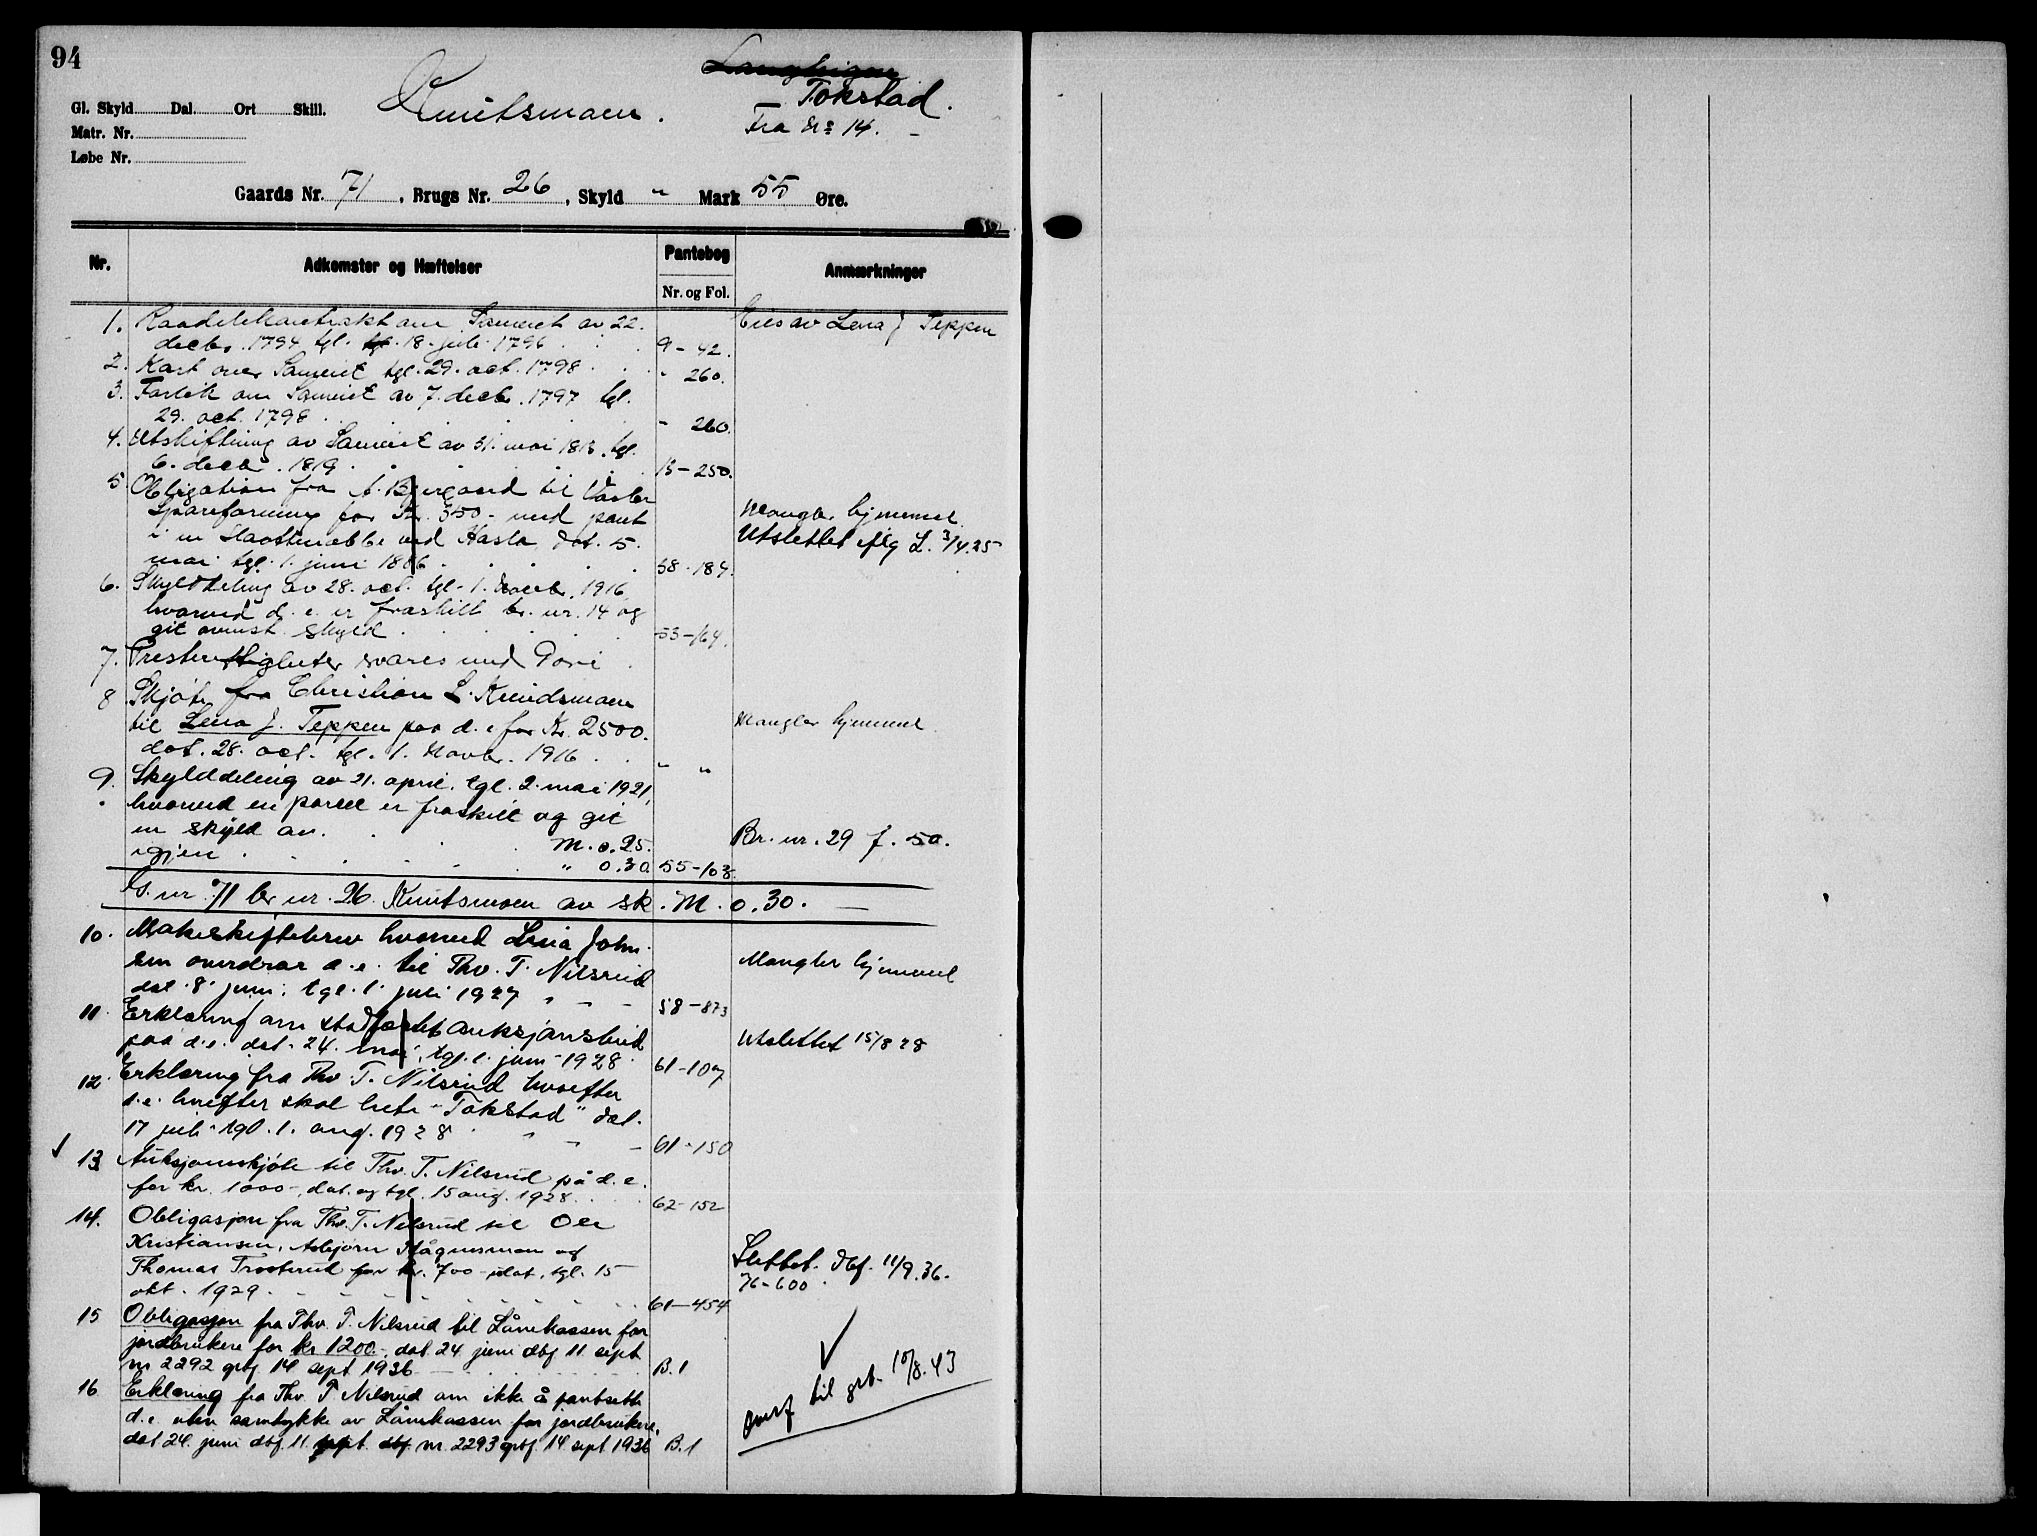 94
Tokstad.
Knutsmoen.
Fra No 14. -
Gl. Skyld Dal. Ort Skill.
Matr. Nr.
Løbe Nr.
Gaards Nr. 71, Brugs Nr. 26, Skyld " Mark 55 Øre.
Nr. Adkomster og Hæftelser Pantebog Nr. og Fol. Anmærkninger
1. om Sameiet av 22. Eies av Lena J Teppen
decbr. 1794 tgl. 18. juli 1796 9-42.
2. Kart over Sameiet tgl. 29. oct. 1798 " 260.
3. Forlik om Sameiet av 7. decbr. 1797 tgl.
29. oct. 1798 " 260.
4. Utskiftning av Sameiet av 31. mai 1813, tgl.
6. decbr. 1819. 15-250.
5. Obligation fra A. Bjergaard til Vaaler
Spareforening for Kr. 350- med pant Mangler hjemmel.
i en ved Hasla, dat. 15. Utslettet iflg L. 3/4.25
mai tgl. 1. juni 1866 58-184.
6. Skylddeling av 28. oct. tgl. 1. Novbr. 1916,
hvorved d. e. er fraskilt br. nr. 14 og
git ovenst. skyld 53-164.
7. Presterettigheter svares med Pori
8 Skjøte fra Christian L. Knudsmoen
til Lena J. Teppen paa d. e for Kr. 2500. Mangler hjemmel.
dat. 28. oct. tgl. 1. Novbr. 1916 " "
9. Skylddeling av 21. april, tgl. 2. mai 1921,
hvorved en parcel er fraskilt og git
en skyld av. M. 0.25. Br. nr. 29 f. 50.
igjen " 0.30 55-103.
G. nr. 71 br nr. 26. Knutsmoen av sk. M. 0.30.
10. Makeskiftebrev hvorved Lena John-
sen overdrar d. e. til Thv. T. Nilsrud Mangler hjemmel
dat. 8. juni, tgl. 1. juli 1927 58-873
11 Erklæring om stadfæstet auksjonsbud Utslettet 15/8 28
paa d.e. dat. 24. mai, tgl. 1. juni 1928 61-107
12. Erklæring fra Thv. T. Nilsrud hvorefter
d.e. herefter skal hete "Tokstad" dat.
17 juli tgl. 1. aug. 1928 61-150
13. Auksjonsskjøte til Thv. T. Nilsrud på d. e.
for kr. 1000-, dat. og tgl. 15 aug. 1928. 62-152
14. Obligasjon fra Thv. T. Nilsrud til Ole
Kristiansen, Asbjørn Mågnusmoen og Slettet. Dbf. 11/9.36.
Thomas Trosterud for kr. 700- dat, tgl. 15 76-600
okt. 1929. 61-454
15 Obligasjon fra Thv. T. Nilsrud til Lånekassen for
jordbrukere for kr 1200.- dat. 24 juni dbf 11. sept
nr 2292 grbf 14 sept 1936 B.1
overf til grb. 10/8.43
16 Erklæring fra Thv T Nilsrud om ikke å pantsette
d.e. uten samtykke av Lånekassen for jordbrukere,
dat 24. juni dbf. 11. sept. dbf nr. 2293 grbf 14 sept 1936 B.1